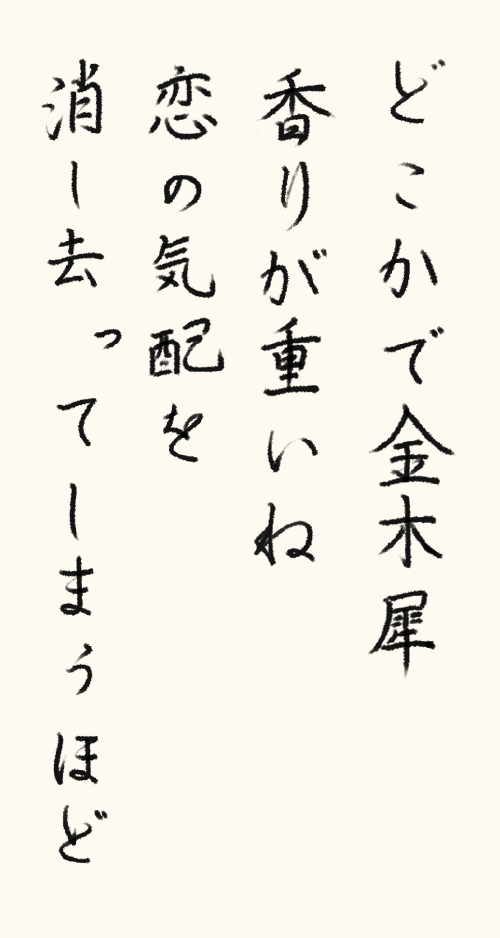 どこかで金木犀
香りが重いね
恋の気配を
消し去ってしまうほど